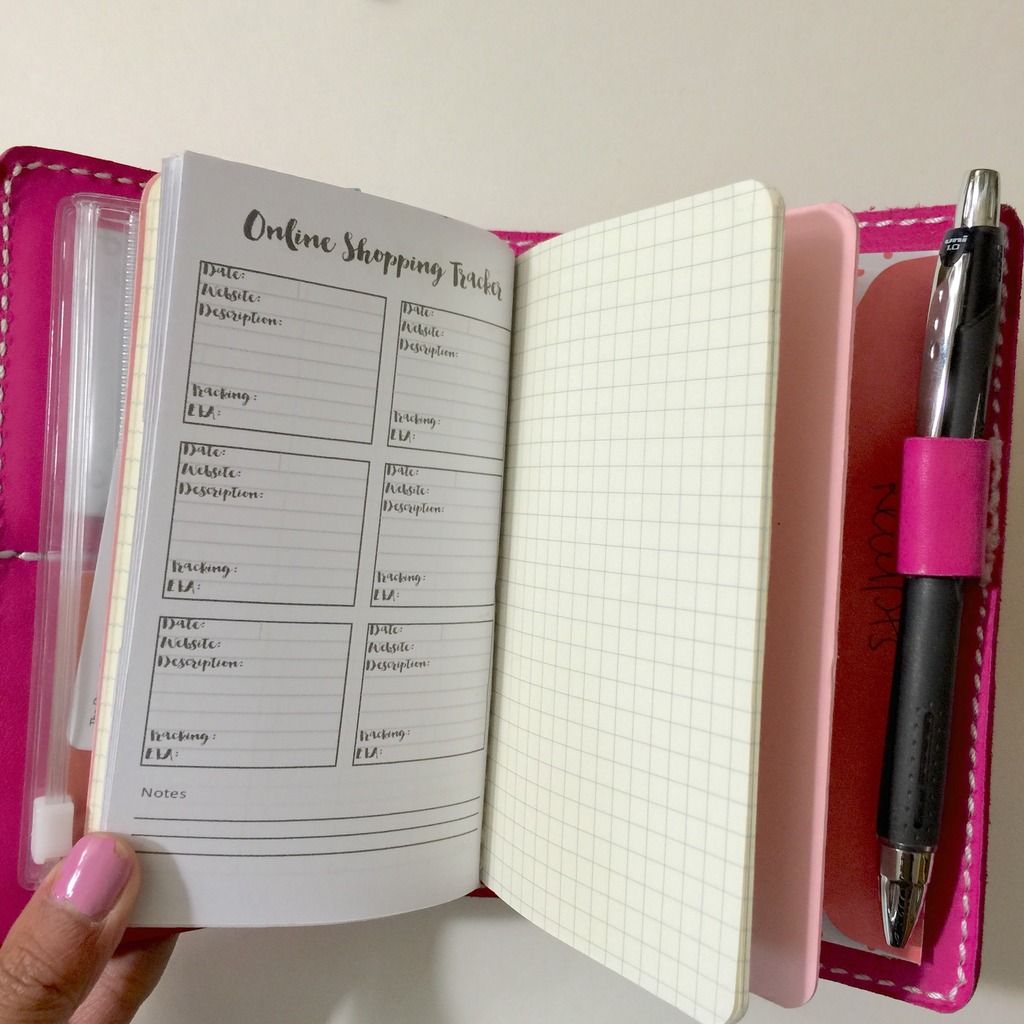 Online Shopping Tracker
Date:
Website:
Description:
Tracking:
ETA:
Date:
Website:
Description:
Tracking:
ETA:
Date:
Website:
Description:
Tracking:
ETA:
Date:
Website:
Description:
Tracking:
ETA:
Date:
Website:
Description:
Tracking:
ETA:
Date:
Website:
Description:
Tracking:
ETA:
Notes
uni
1.0
Receipts